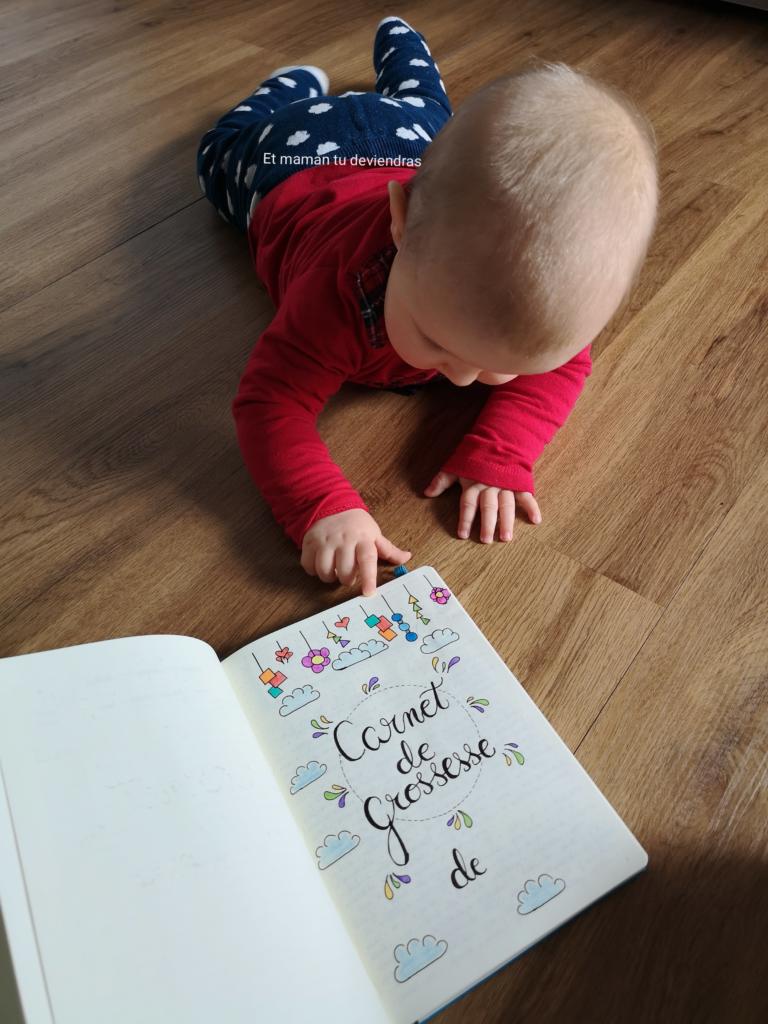 Et maman tu deviendras
Carnet
de
Grossesse
de